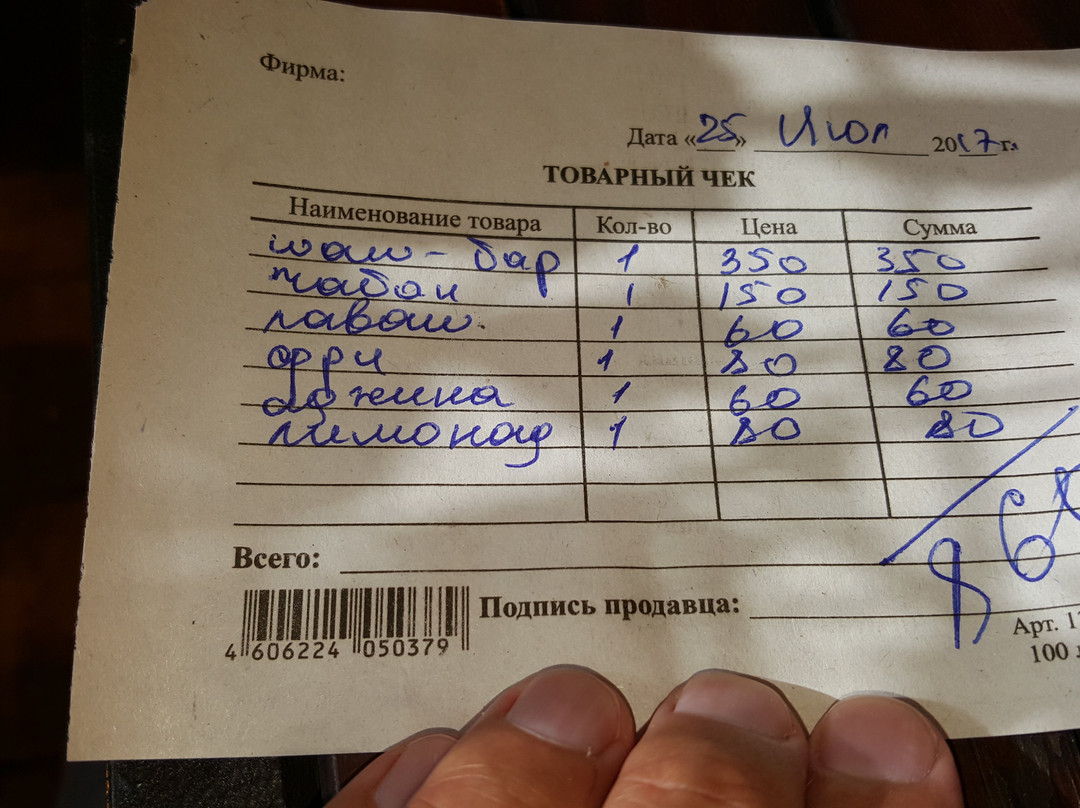 Фирма:
Дата «25» Июл 2017 г.
ТОВАРНЫЙ ЧЕК
Наименование товара Кол-во Цена Сумма
шаш-бар 1 350 350
чабан 1 150 150
лаваш 1 60 60
фри 1 80 80
аджика 1 60 60
лимонад 1 80 80
Всего:
Подпись продавца:
4 606224 050379
Арт. 1
100